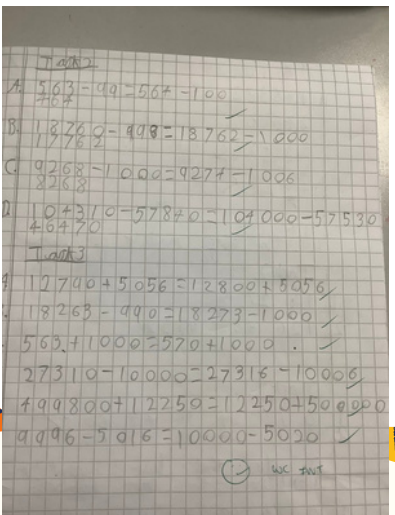 Task2
A. 563-99=564-100
464
B. 18760-998=18762-1000
17762
C. 9268-1000=9274-1006
8268
D. 104310-57840=104000-57530
46470
Task3
12790+5056=12800+5056
18263-990=18273-1000
563+1000=570+1000
27310-10000=27316-10006
499800+12250=12250+500000
9996-5016=10000-5020
WC